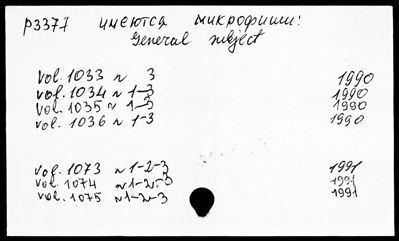 P3377 имеются микрофиши:
General subject
vol. 1033 N 3 1990
vol. 1034 N 1-3 1990
vol. 1035 N 1-3 1990
vol. 1036 N 1-3 1990
vol. 1073 N 1-2-3 1991
vol. 1074 N 1-2-3 1991
vol. 1075 N 1-2-3 1991